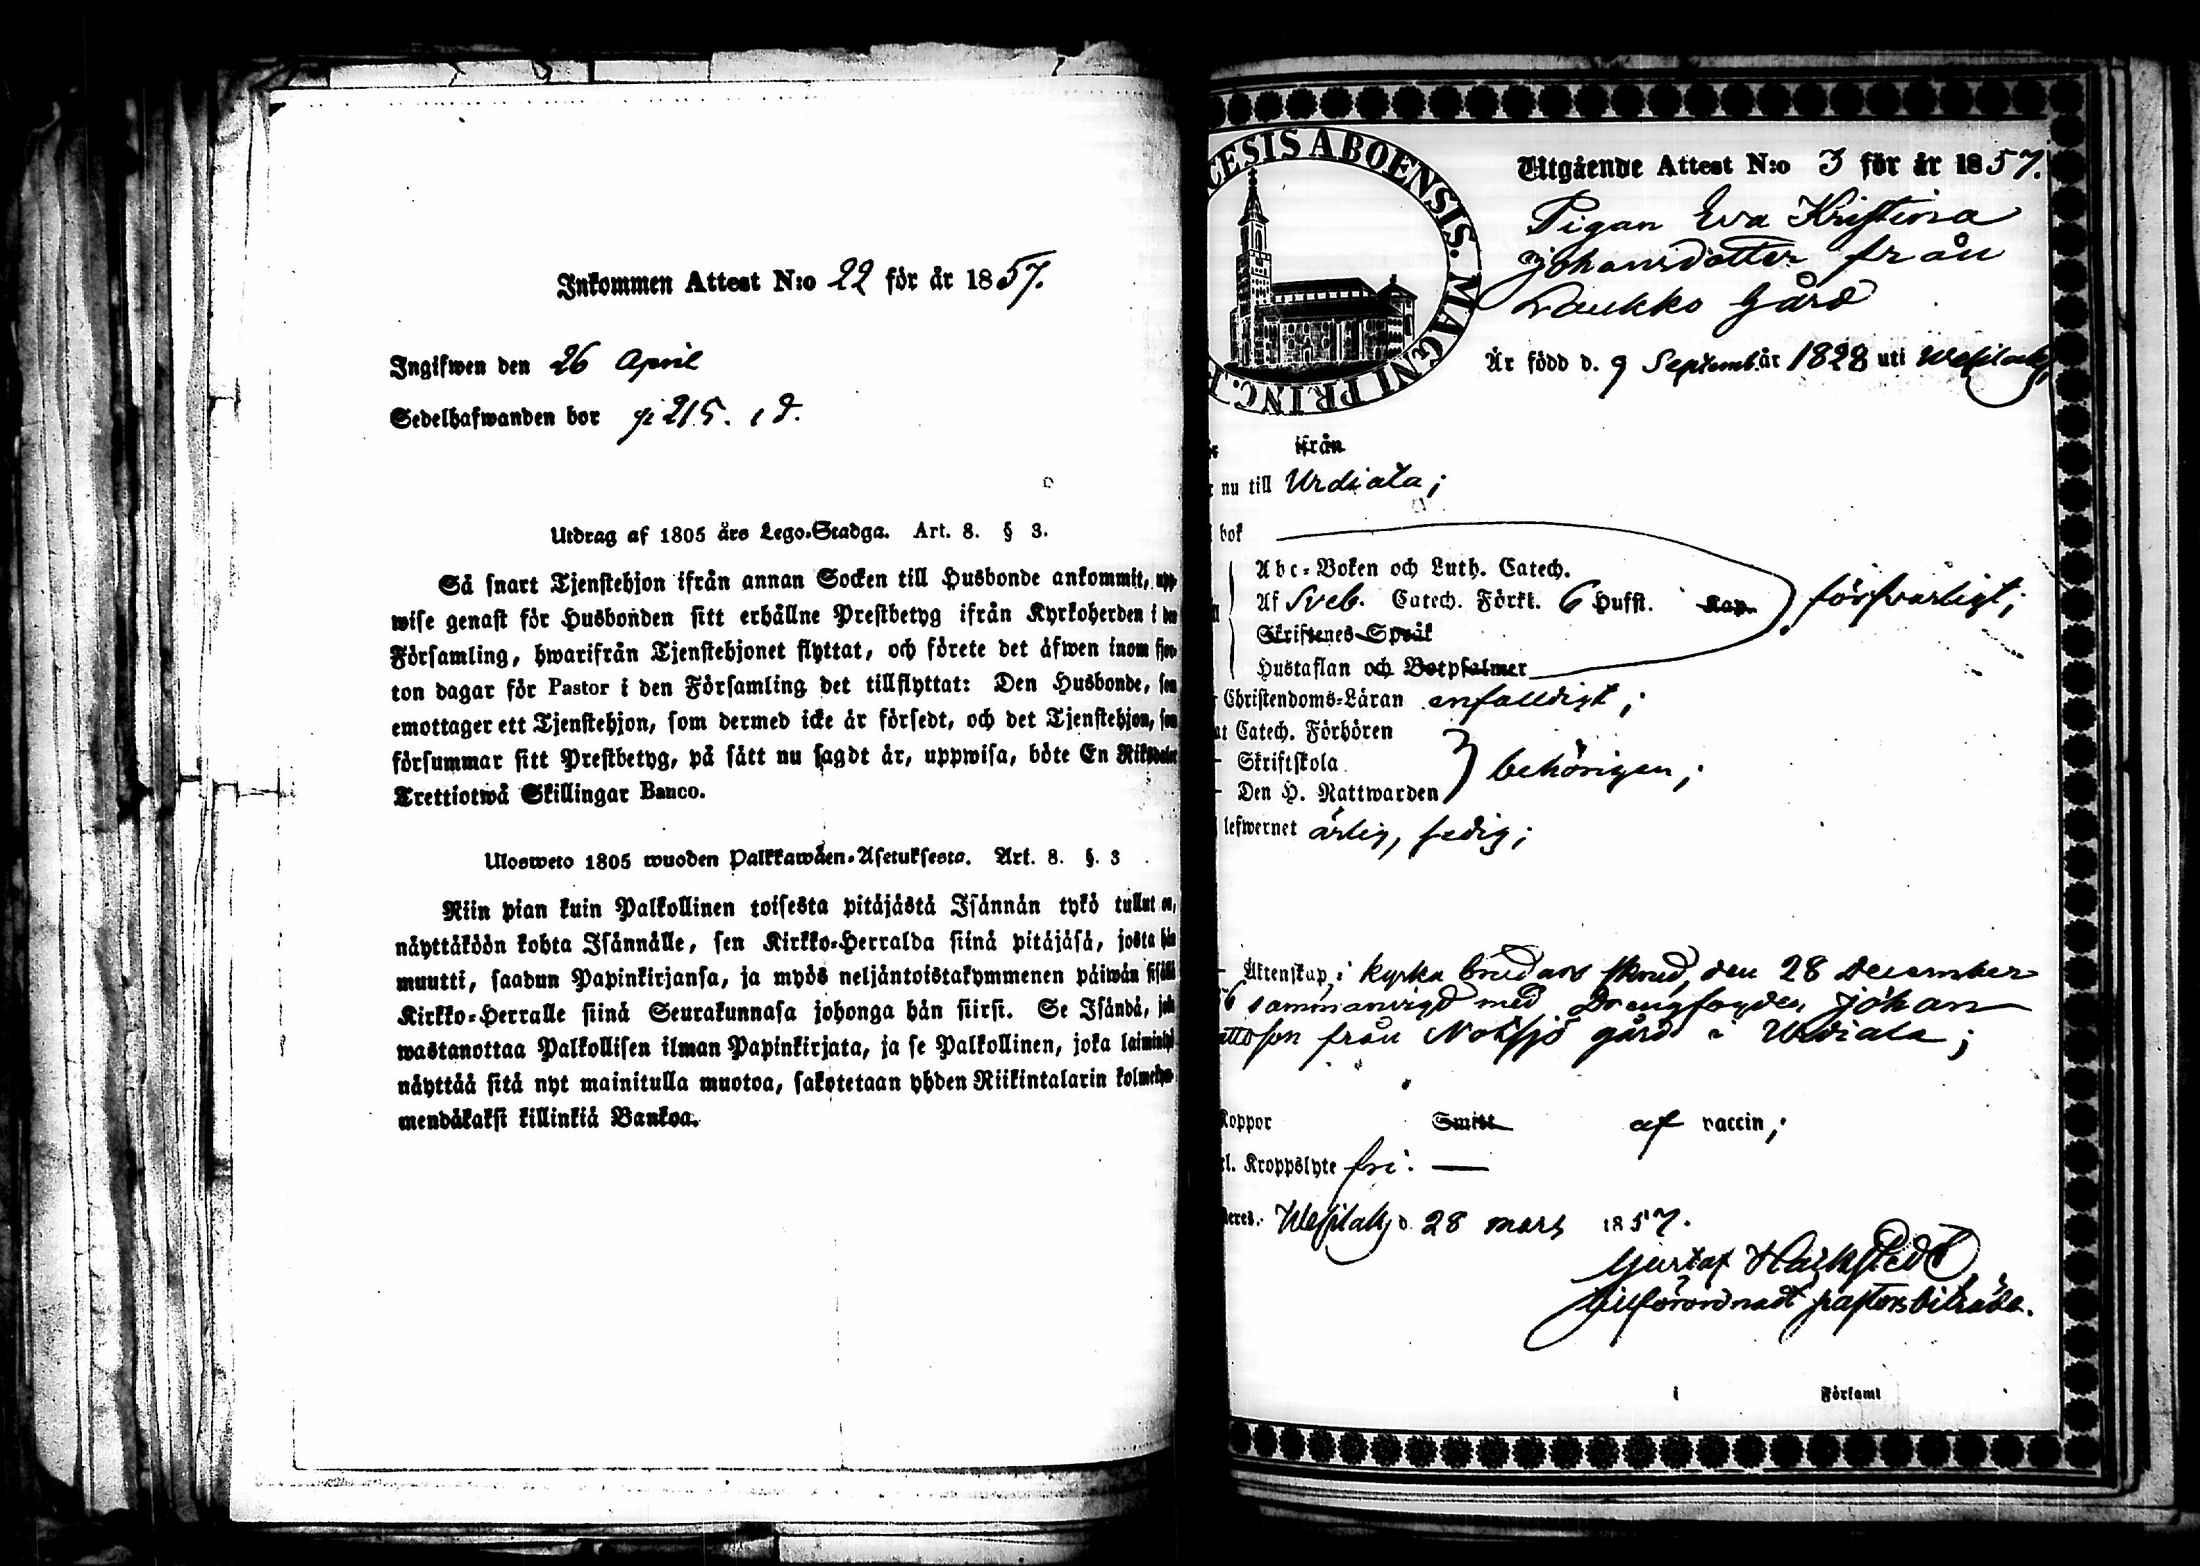 Inkommen Attest N:o 22 för år 1857.
Ingifwen den 26 April
Sedelhafwanden bor pi 215. 1 d.
Utdrag af 1805 års Lego-Stadga. Art. 8. § 3.
Så snart Tjenstehjon ifrån annan Socken till Husbonde ankommit, upp-
wise genast för Husbonden sitt erhållne Prestbetyg ifrån Kyrkoherden i den
Församling, hwarifrån Tjenstehjonet flyttat, och förete det äfwen inom fjor-
ton dagar för Pastor i den Församling det tillflyttat: Den Husbonde, som
emottager ett Tjenstehjon, som dermed icke är försedt, och det Tjenstehjon, som
försummar sitt Prestbetyg, på sätt nu sagdt är, uppwisa, böte En Riksdaler
Trettiotwå Skillingar Banco.
Ulosweto 1805 wuoden Palkkawäen-Asetuksesta. Art. 8. §. 3
Niin pian kuin Palkollinen toisesta pitäjästä Isännän tykö tullut on,
näyttäköön kohta Isännälle, sen Kirkko-Herralda siinä pitäjäsä, josta hän
muutti, saadun Papinkirjansa, ja myös neljäntoistakymmenen päiwän sisällä
Kirkko-Herralle siinä Seurakunnasa johonga hän siirsi. Se Isändä, joka
wastanottaa Palkollisen ilman Papinkirjata, ja se Palkollinen, joka laiminlyö
näyttää sitä nyt mainitulla muotoa, sakotetaan yhden Riikintalarin kolmekym-
mendäkaksi killinkiä Bankoa.
CESIS ABOENSIS. MAGNI PRINC. F
Utgående Attest N:o 3 för år 1857.
Pigan Eva Kristina
Johansdotter från
Laukko Gård
Är född d. 9 Septemb. år 1828 uti Wesilaks,
ifrån
nu till Urdiala;
bok
Abc-Boken och Luth. Catech.
Af Sveb. Catech. Förkl. 6 Hufst. Kap. försvarligt;
Skriftenes Språk
Hustaflan och Botpsalmer
Christendoms-Läran enfaldigt;
Catech. Förhören
Skriftskola behörigen;
Den H. Nattwarden
lefwernet ärlig, ledig;
Äktenskap, i kyrka brudars skrud, den 28 December
56 sammanvigd med Drängfogden Johan
från Notsjö gård i Urdiala;
Koppor Smitt af vaccin;
Kroppslyte fri.
Wesilaks d. 28 mars 1857.
Gustaf Haikstedt
tillförordnadt pastorsbiträde.
i Församl